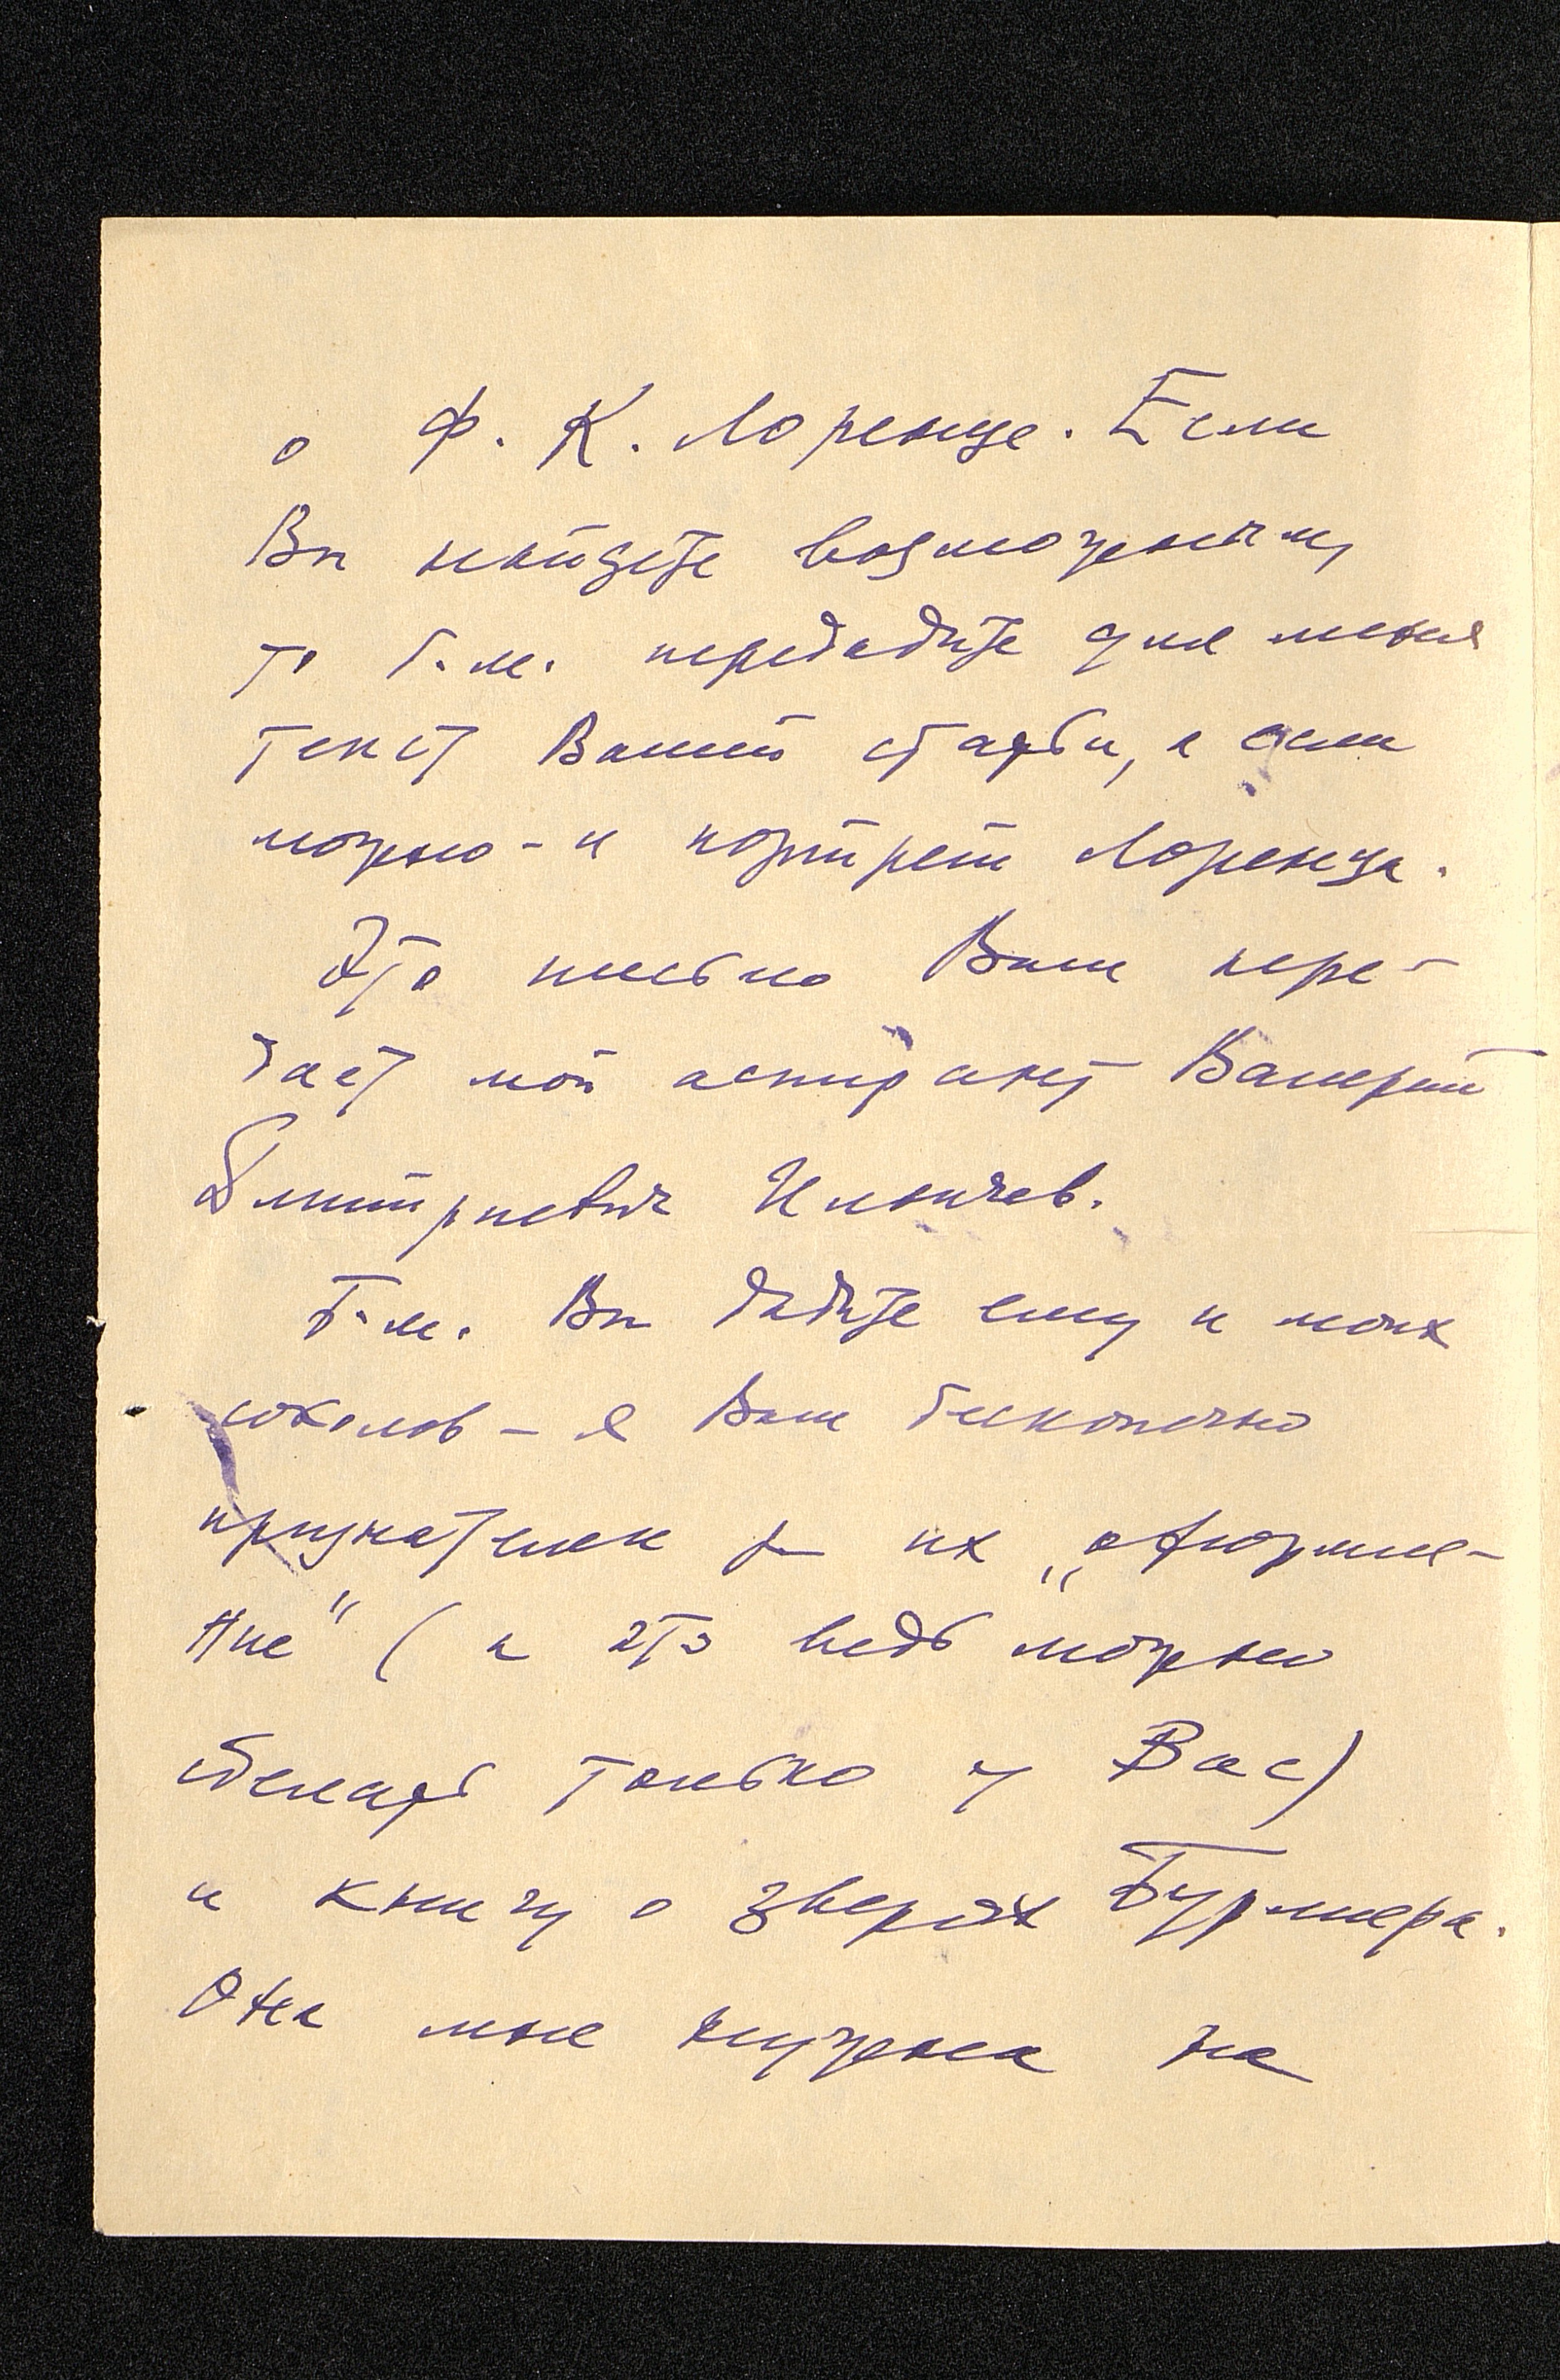 о Ф. К. Лоренце. Если
Вы найдете возможным,
то б. м. передадите для меня
текст Вашей статьи, а если
можно - и портрет Лоренца.
Это письмо Вам пере-
даст мой аспирант Валерий
Дмитриевич Ильичев.
Б. м. Вы дадите ему и моих
соколов - я Вам бесконечно
признателен за их „оформле-
ние" (а это ведь можно
сделать только у Вас)
и книгу о зверях Бурмера.
Она мне нужна на